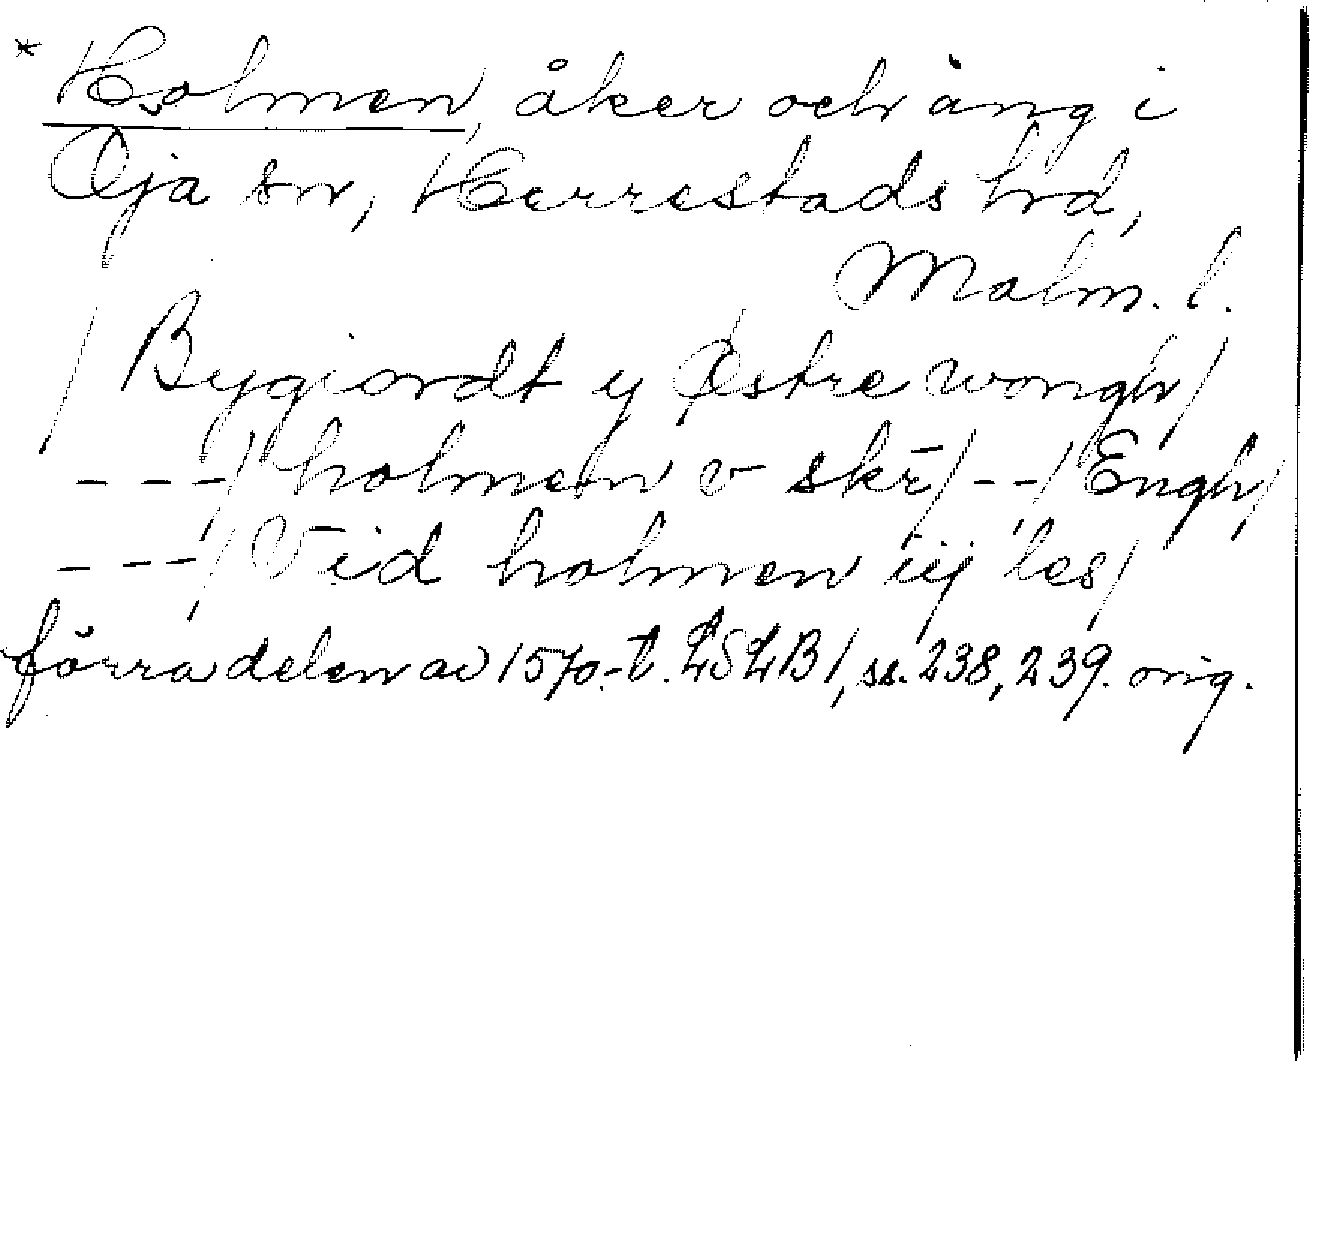 * Holmen, åker och äng i
Öja sn, Herrestads hrd,
Malm. l.
/ Bygiordt y Østre wongh/
---/ holmen v skr̄/--/Engh/
---/ Vid holmen iij les/
förra delen av 1570.-t. LSLB1, ss. 238, 239. orig.